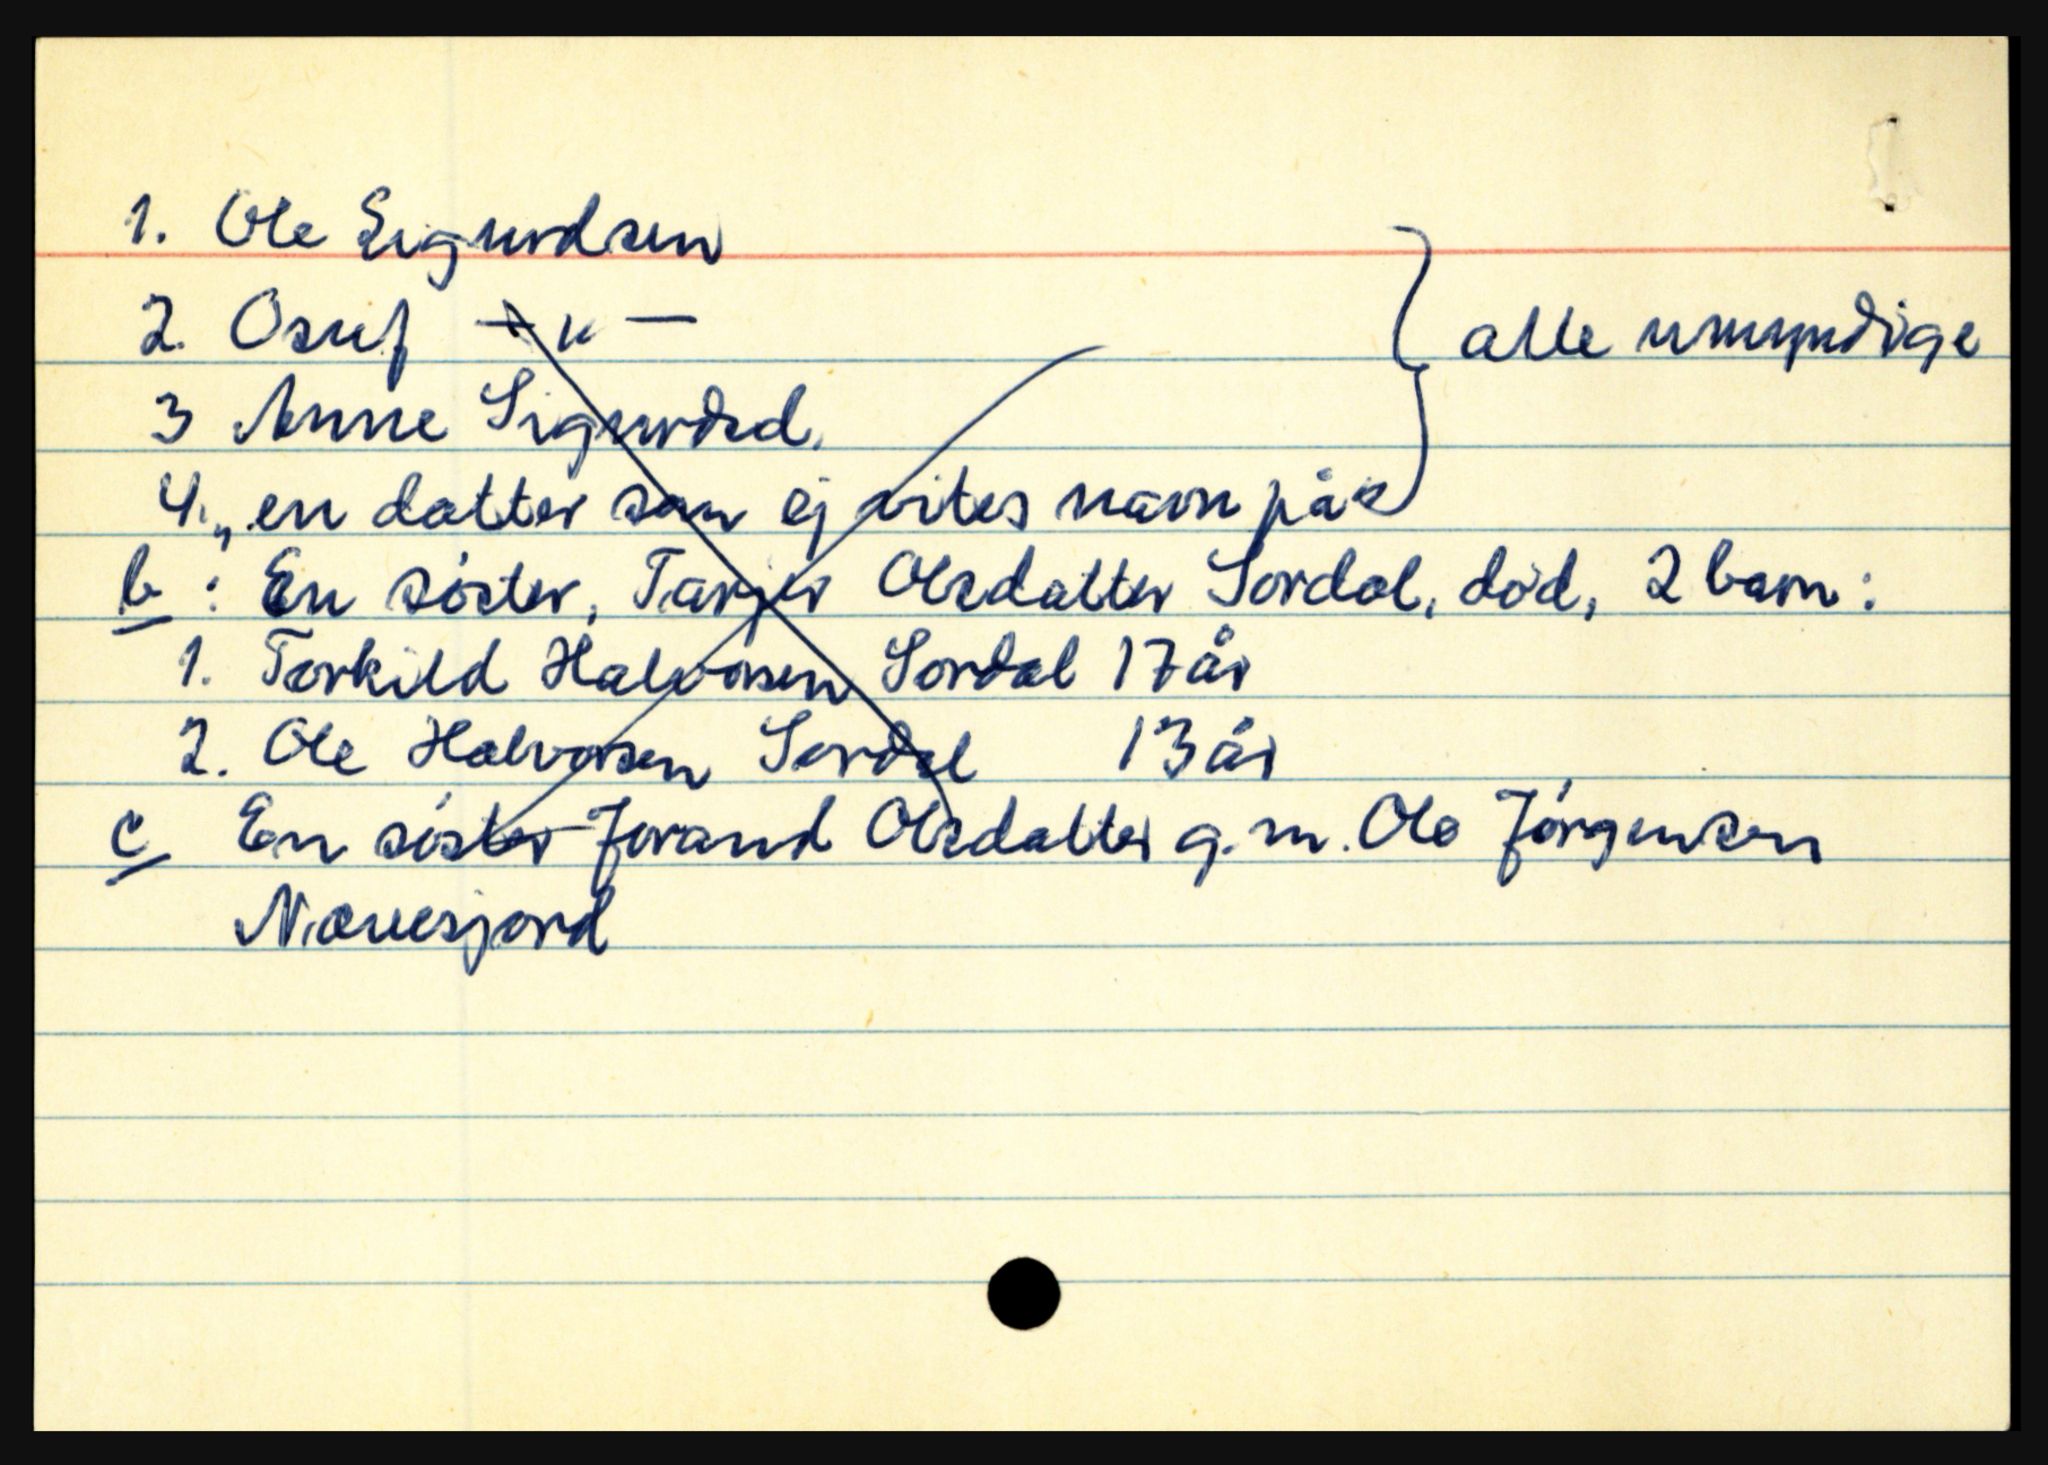 1. Ole Sigurdsen
2. Osuf — " —
3 Anne Sigurdsd.
alle umyndige
4. en datter som ej vites navn på
b : En søster, Tarjer Olsdatter Sordal, død, 2 barn:
1. Torkild Halvorsen Sordal 17 år
2. Ole Halvorsen Sordal 13 år
c En søster Jorand Olsdatter g.m. Ole Jörgensen
Nævesjord